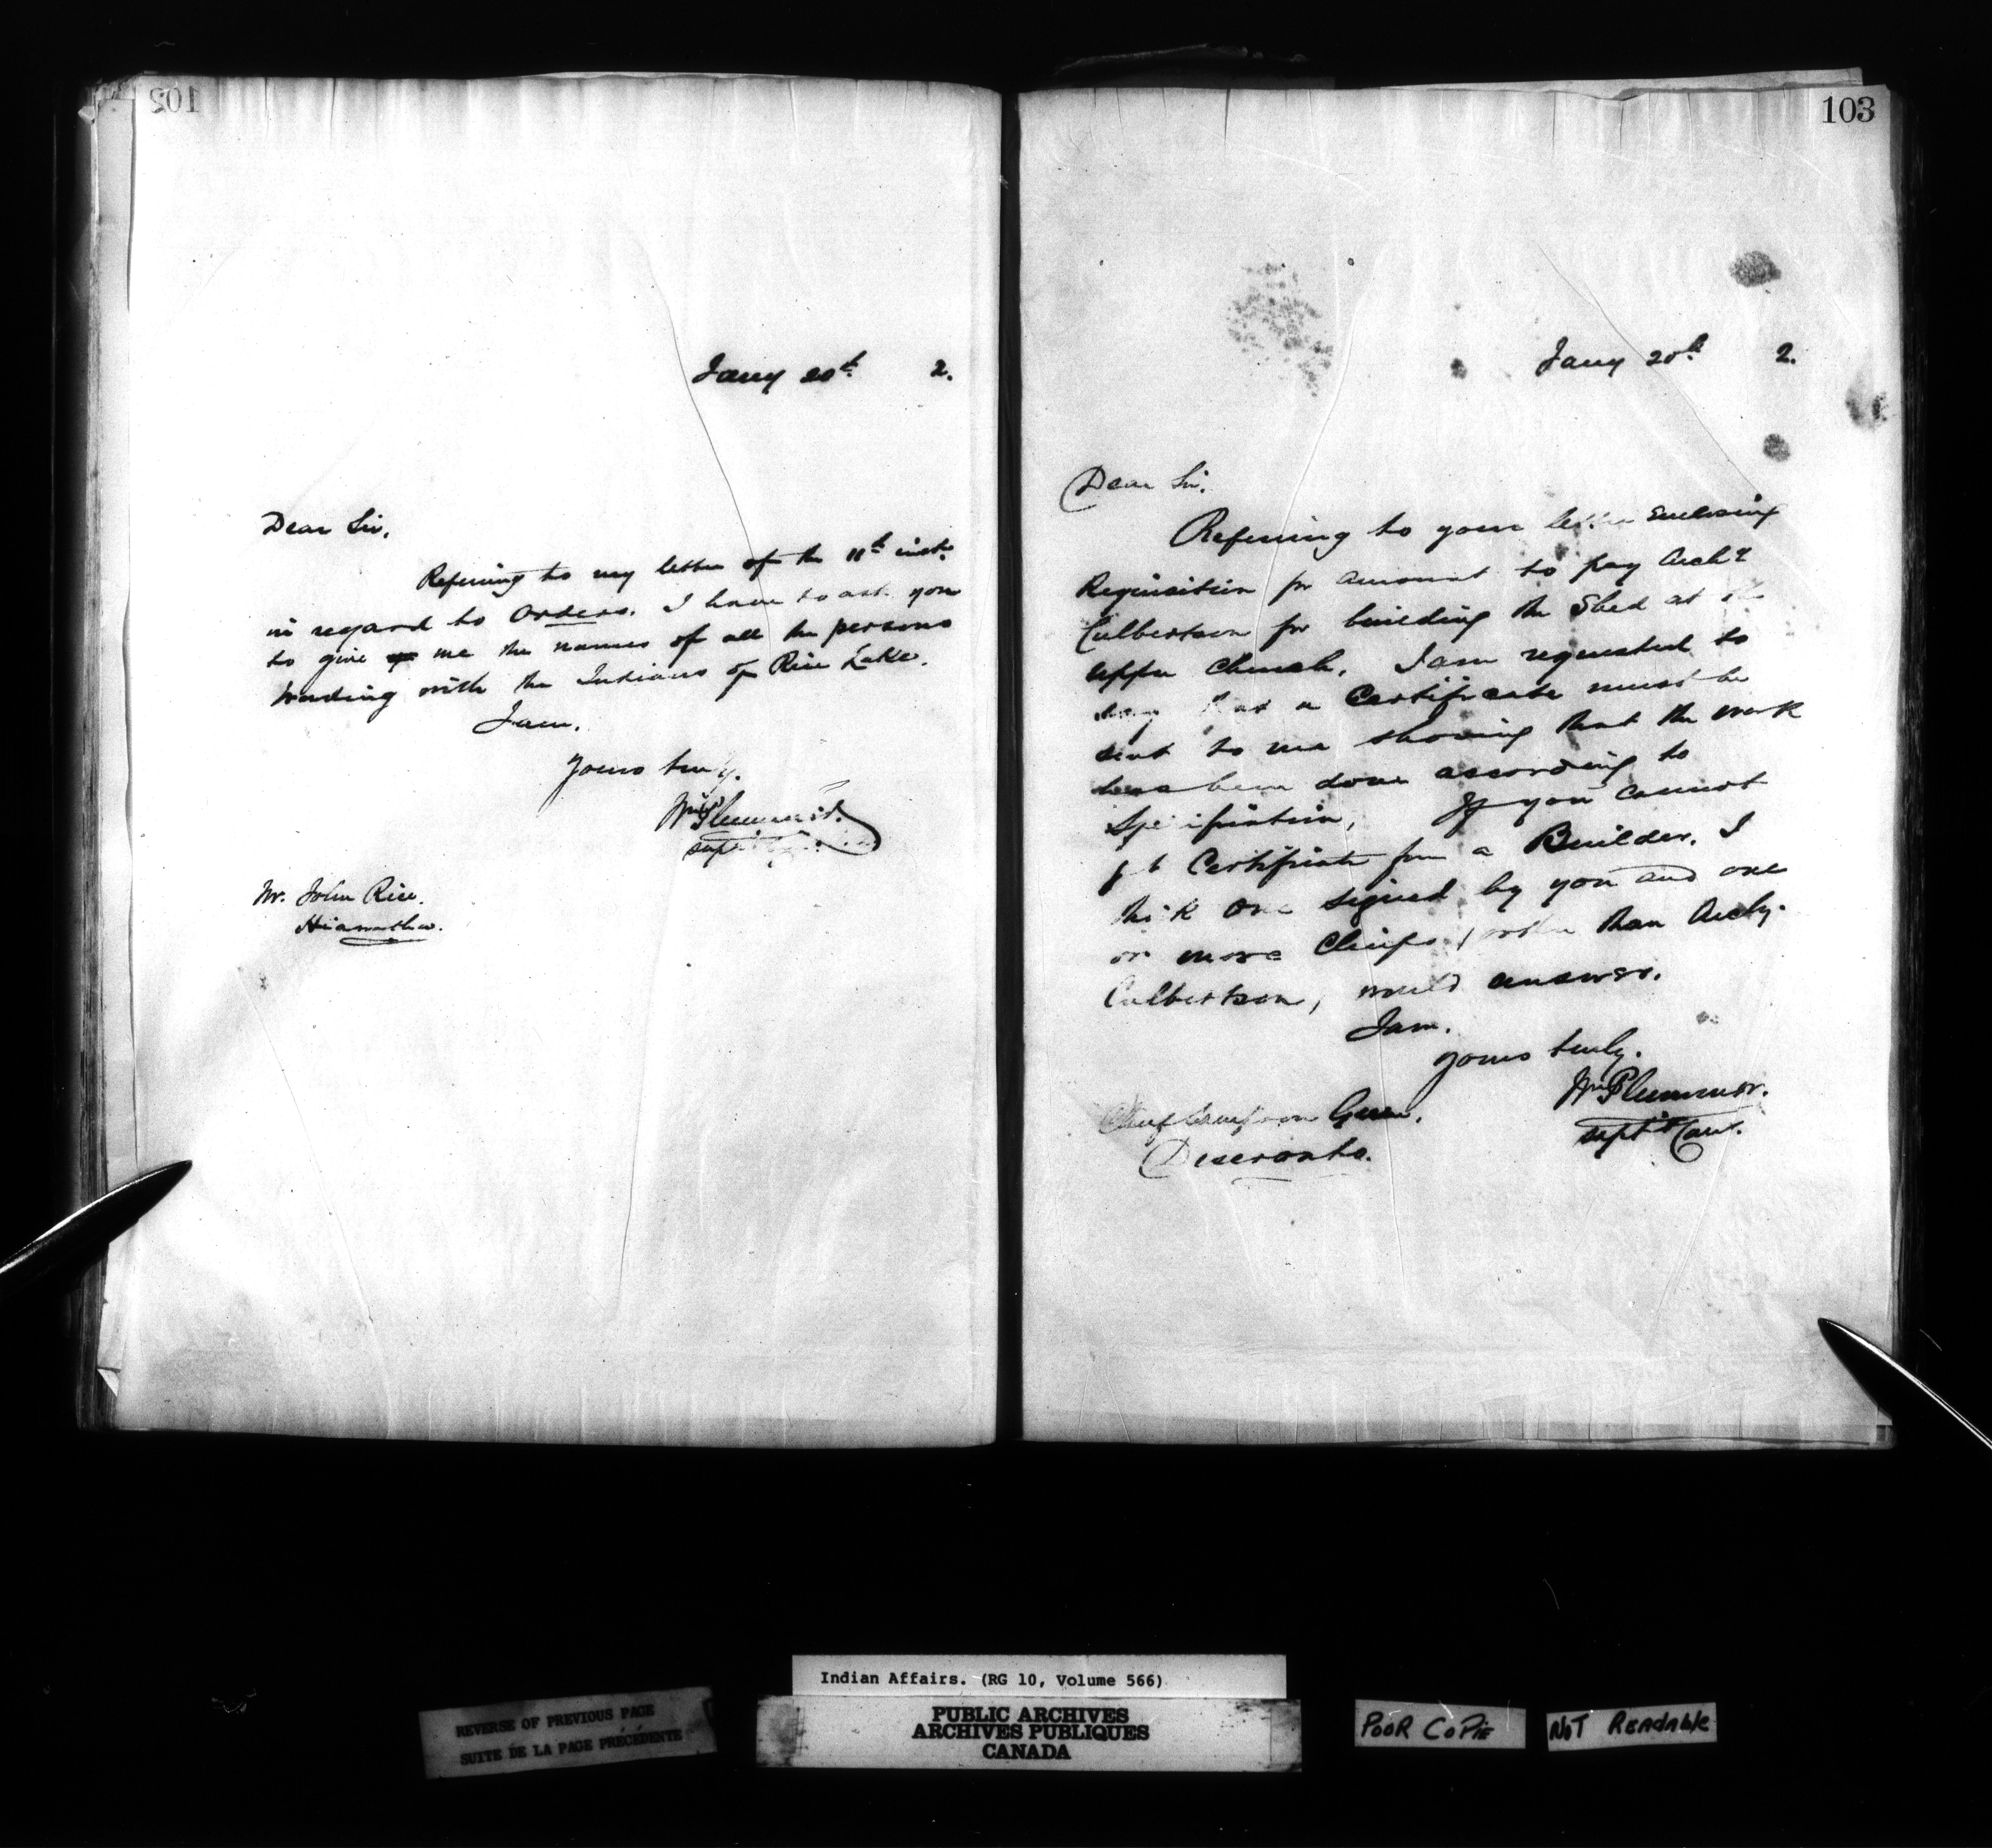 102
Jany 20th 2.
Dear Sir,
Referring to my letter of the 11th inst.
in regard to orders. I have to ask you
to give me the names of all the persons
trading with the Indians of Rice Lake.
I am.
yours truly.
Wm Plummer.
Supt
Mr. John Rice.
Hiawatha.
103
Jany 20th 2.
Dear Sir.
Referring to your letter enclosing
Requisition for amount to pay Archd
Culbertson for building the Shed at the
upper Church. I am requested to
say that a Certificate must be
sent to me showing that the work
has been done according to
Specification, If you cannot
get Certificate from a Builder, I
think one signed by you and one
or more Chiefs, other than Archy.
Culbertson, would answer.
I am.
yours truly.
Wm Plummer.
Supt & Com.
Chief Sampson Green.
Deseronto.
Indian Affairs. (RG 10, Volume 566)
REVERSE OF PREVIOUS PAGE
SUITE DE LA PAGE PRÉCÉDENTE
PUBLIC ARCHIVES
ARCHIVES PUBLIQUES
CANADA
POOR COPIE
NOT READABLE